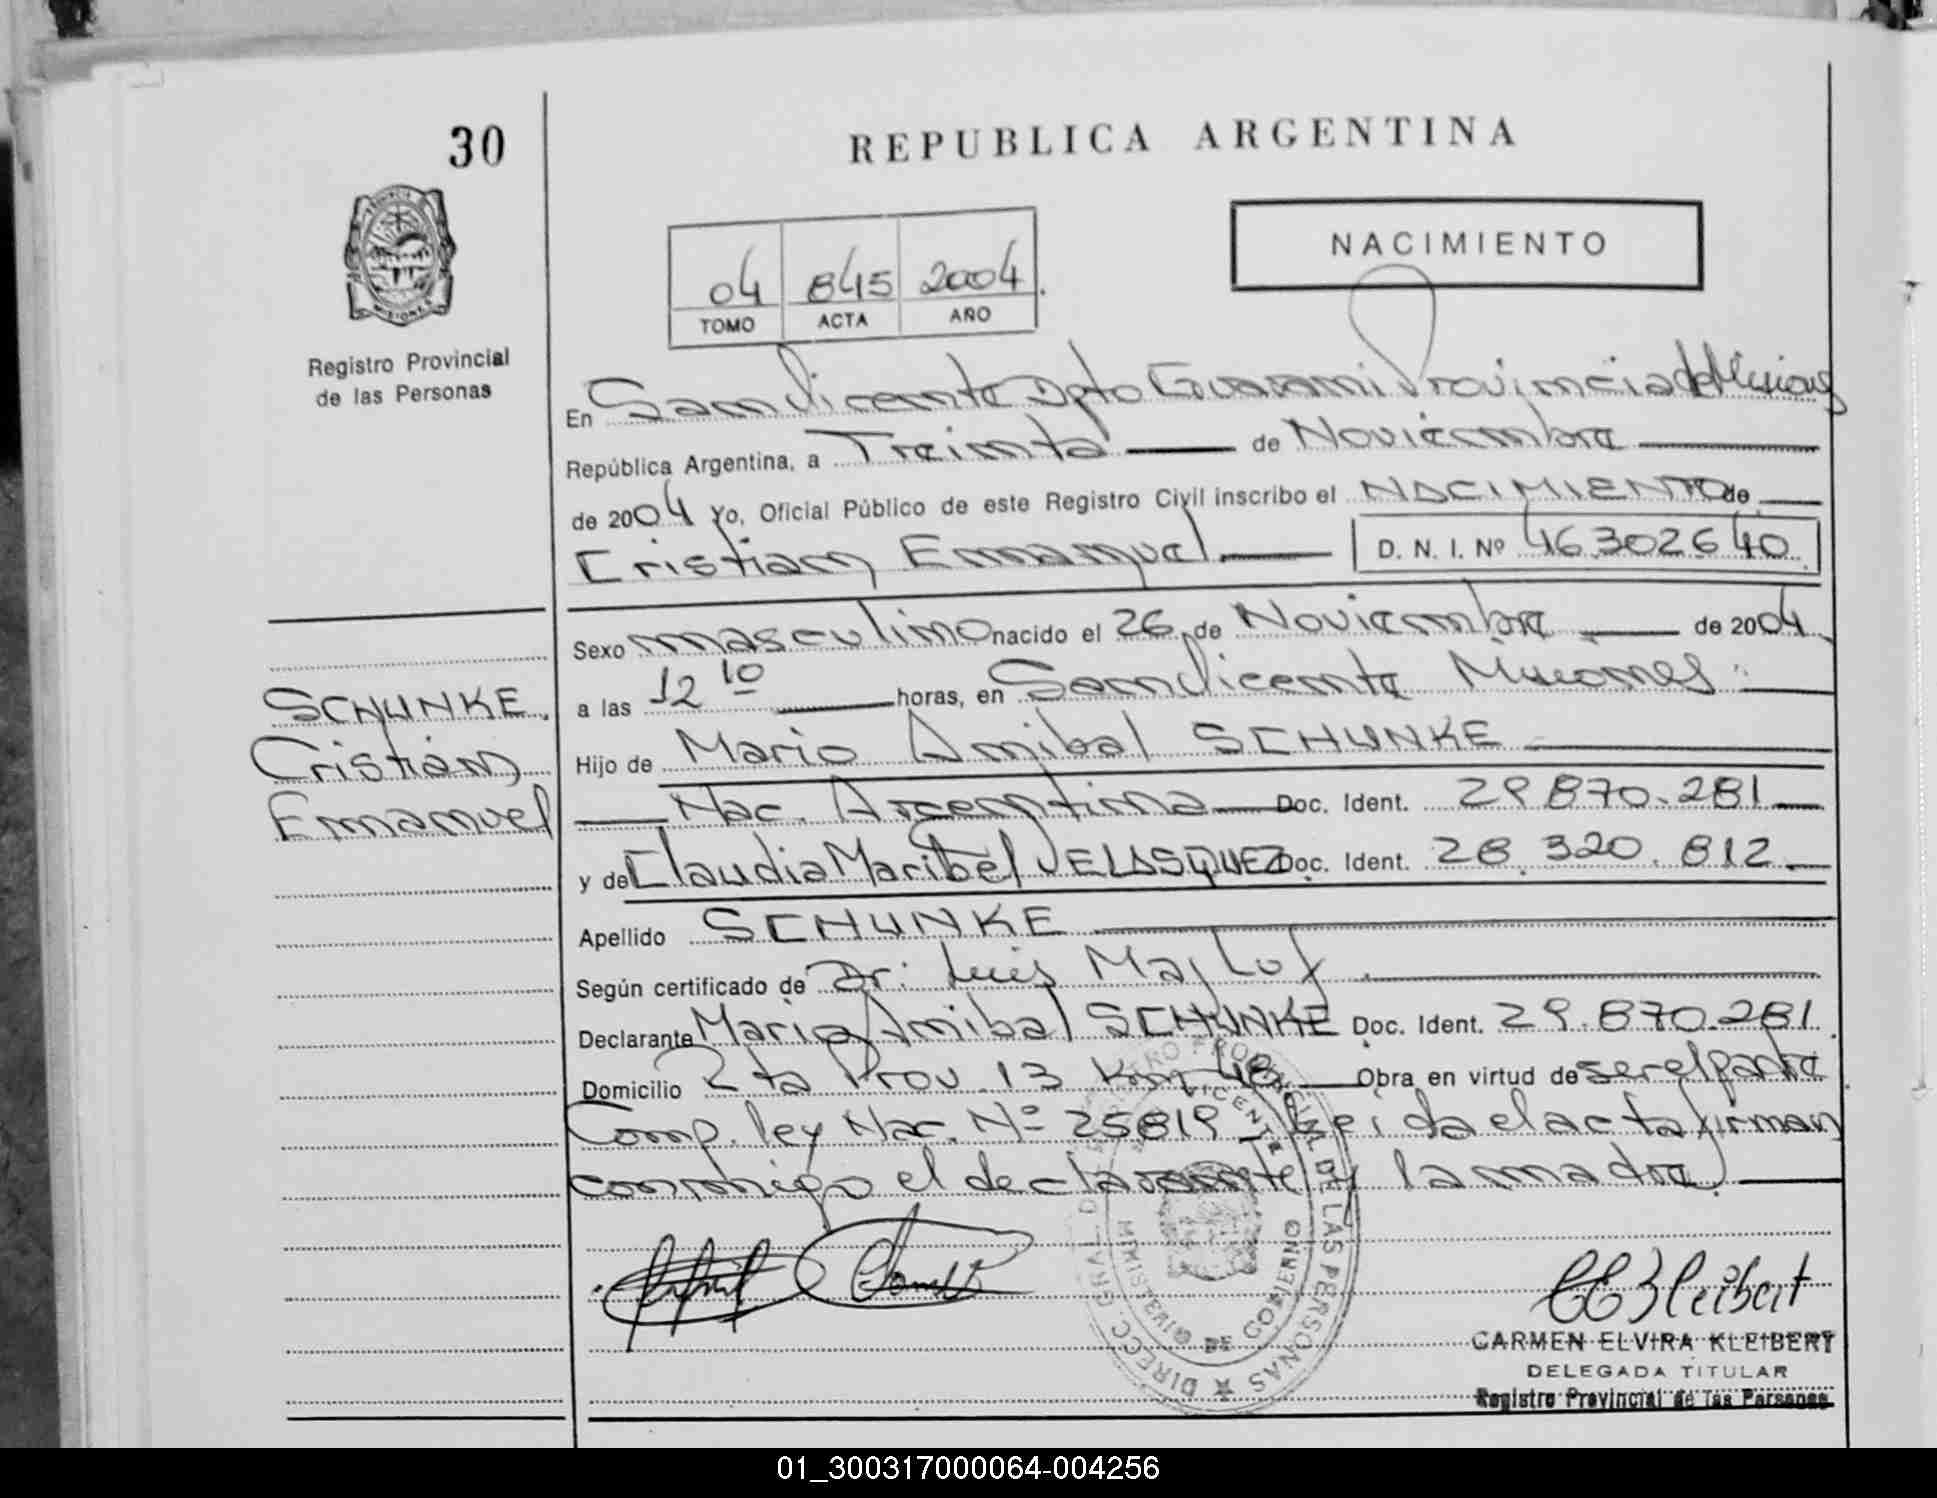 30
REPUBLICA ARGENTINA
NACIMIENTO
04 845 2004
TOMO ACTA AÑO
Registro Provincial
de las Personas
En San Vicente Dpto Guarani Provincia de Misiones
República Argentina, a Treinta de Noviembre
de 2004 Yo, Oficial Público de este Registro Civil inscribo el NACIMIENTO de
Cristian Emanuel D. N. I. Nº 46.302.640
Sexo masculino nacido el 26 de Noviembre de 2004
a las 12 10 horas, en San Vicente Misiones
SCHUNKE
Cristian
Emanuel
Hijo de Mario Anibal SCHUNKE
Nac. Argentina Doc. Ident. 29.870.281
y de Claudia Maribel VELASQUEZ Doc. Ident. 28.320.812
Apellido SCHUNKE
Según certificado de Dr: Luis
Declarante Mario Anibal SCHUNKE Doc. Ident. 29.870.281
Domicilio Rta Prov. 13 Km 48 Obra en virtud de ser el padre
Comp. ley Nac. Nº 25819 Leida el acta firman
conmigo el declarante y la madre
DIRECC. GRAL. DEL REGISTRO PROVINCIAL DE LAS PERSONAS
SAN VICENTE
MINISTERIO DE GOBIERNO
CEKleibert
CARMEN ELVIRA KLEIBERT
DELEGADA TITULAR
Registro Provincial de las Personas
01_300317000064-004256